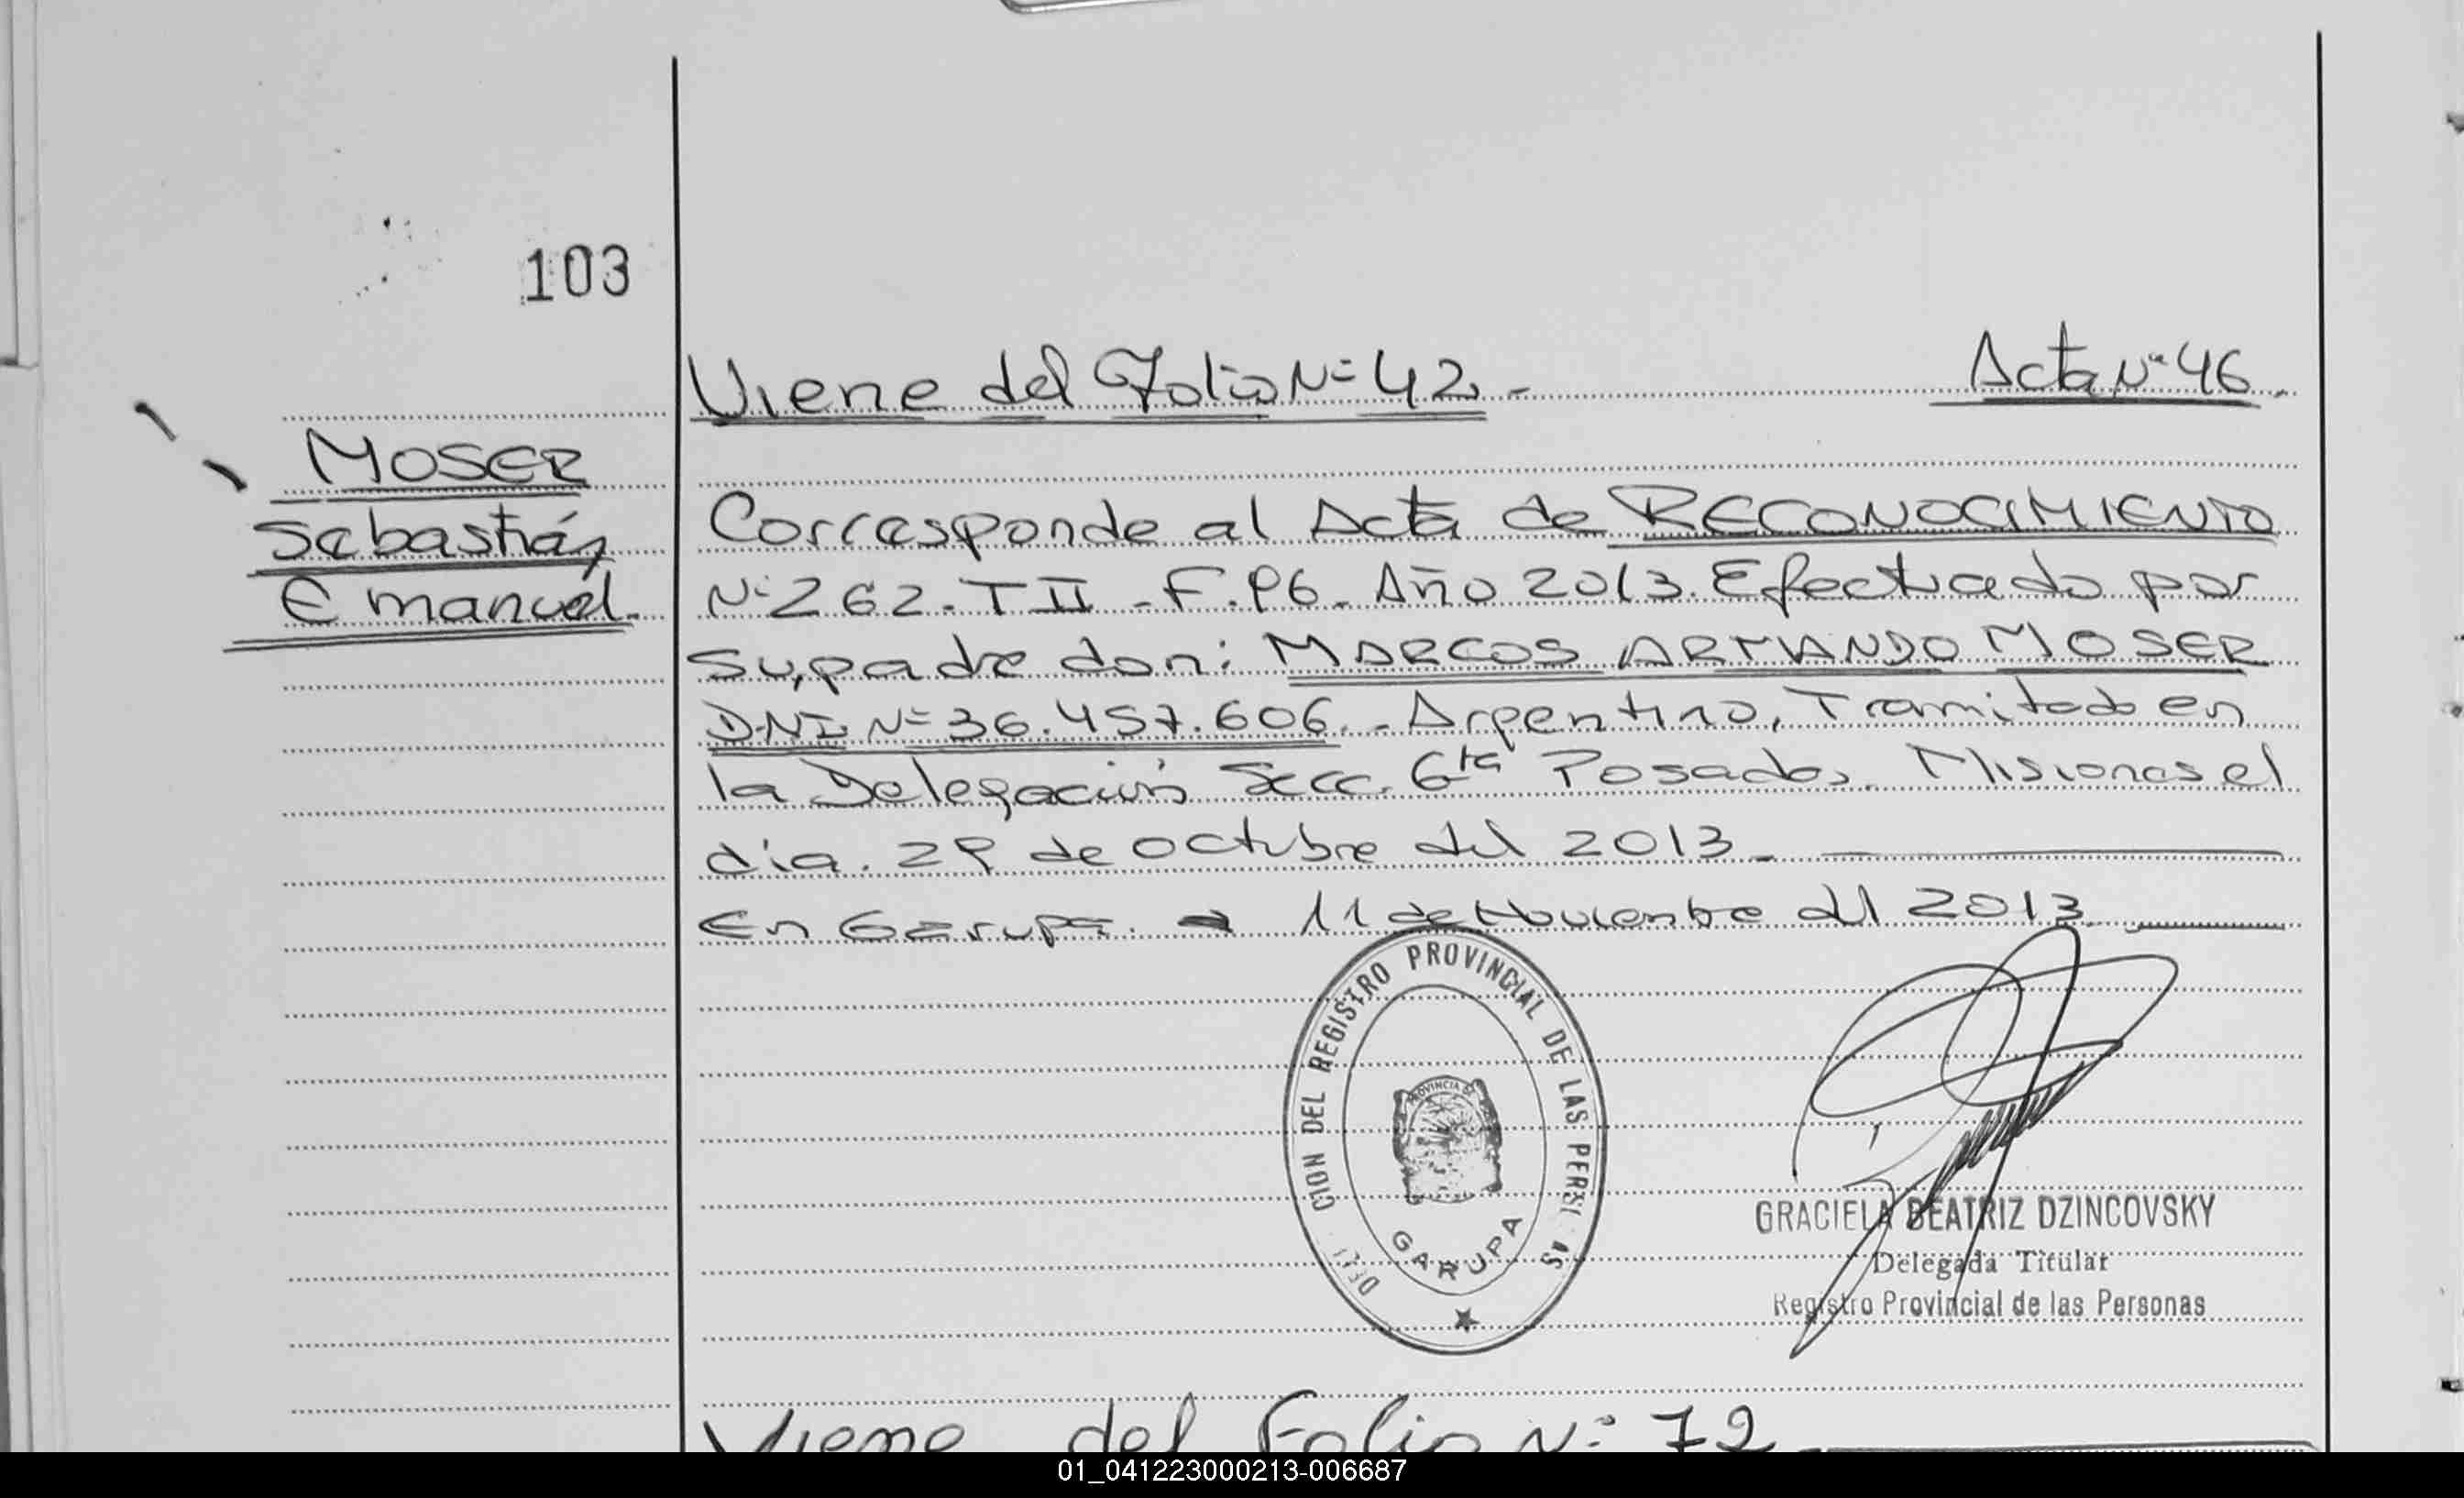 103
Viene del Folio Nº 42.- Acta Nº 46.
MOSER
Sebastián
Emanuel.
Corresponde al Acta de RECONOCIMIENTO
Nº 262. T II - F. 96. Año 2013. Efectuado por
su padre don: MARCOS ARMANDO MOSER
DNI Nº 36.457.606.- Argentino, Tramitado en
la Delegación Secc. 6ta Posadas. Misiones el
día. 29 de octubre del 2013.-
En Garupa. a 11 de Noviembre del 2013.
CION DEL REGISTRO PROVINCIAL DE LAS
PROVINCIA
GARUPA
GRACIELA BEATRIZ DZINCOVSKY
Delegada Titular
Registro Provincial de las Personas
Viene del Folio Nº: 72
01_041223000213-006687